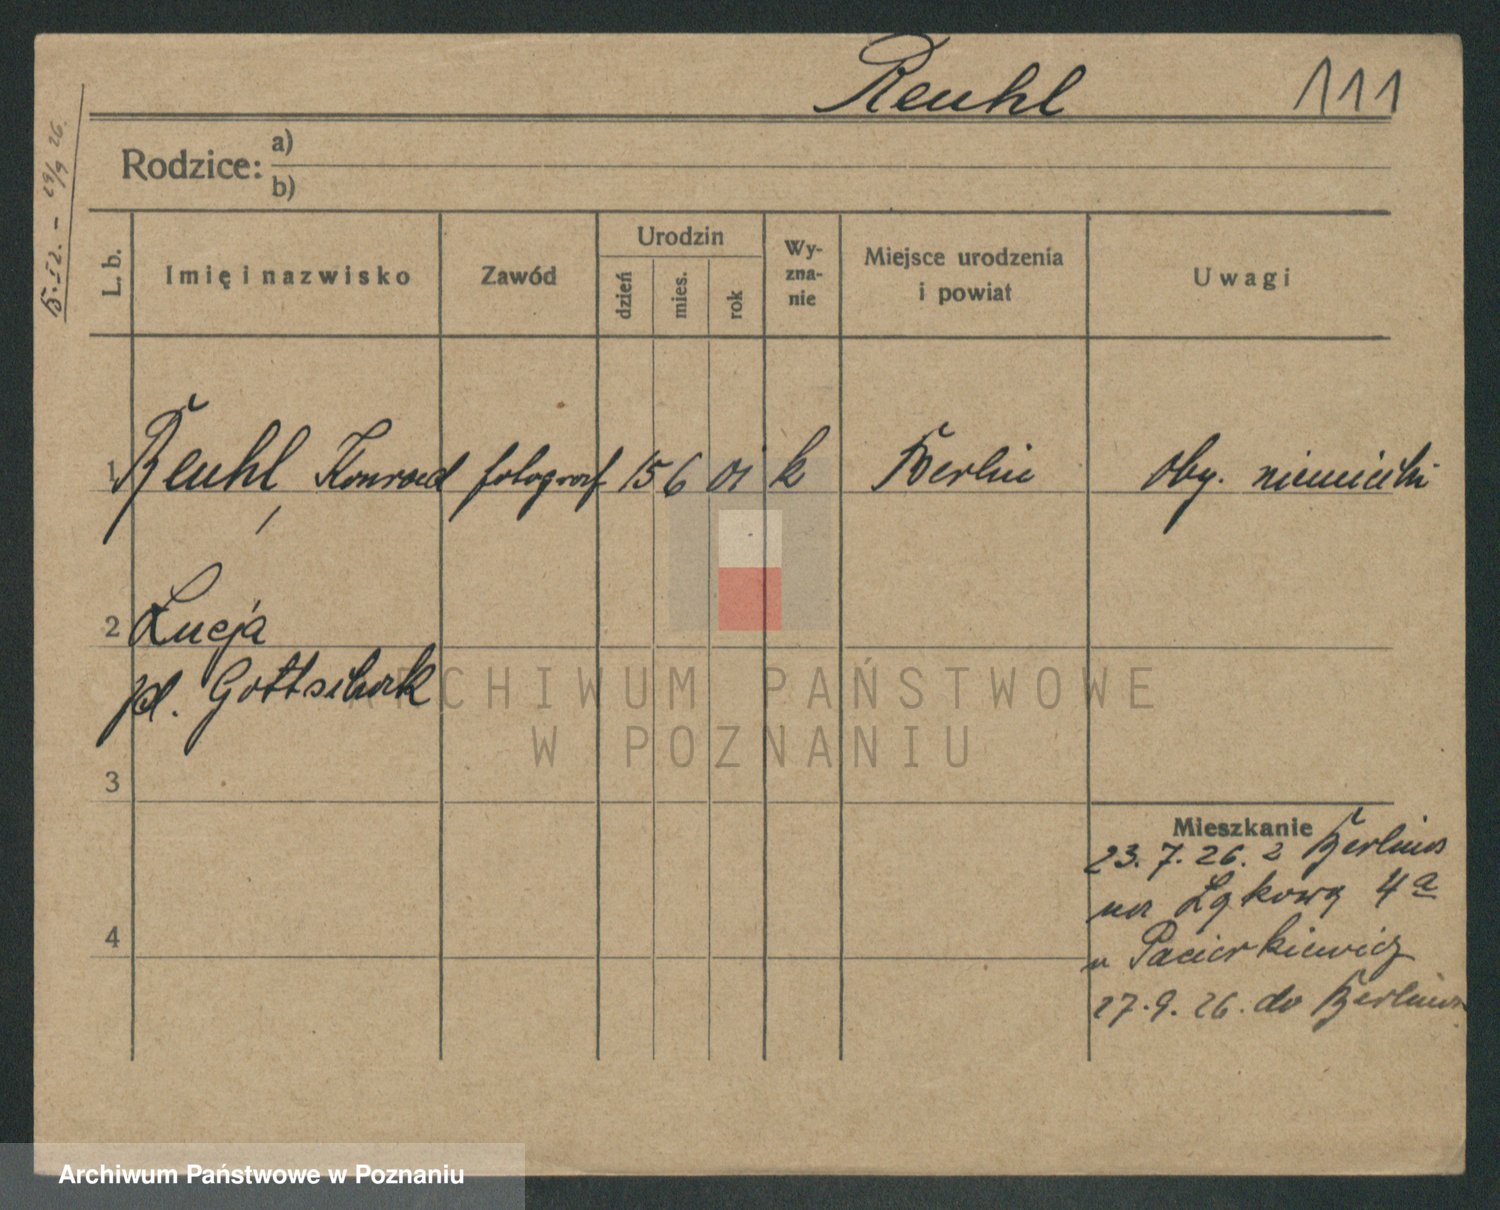 Reuhl 111
Rodzice: a)
b)
B. 52. - 29/9 26.
L. b. Imię i nazwisko Zawód Urodzin dzień mies. rok Wy-zna-nie Miejsce urodzenia i powiat Uwagi
1 Reuhl, Konrad fotograf 15 6 01 k Berlin oby. niemiecki
2 Lucja
Gottschack
3
Mieszkanie
23. 7. 26. z Berlina
na Łąkową 4a
u Pacierkiewicz
4
27. 9. 26. do Berlina
ARCHIWUM PAŃSTWOWE
W POZNANIU
Archiwum Państwowe w Poznaniu